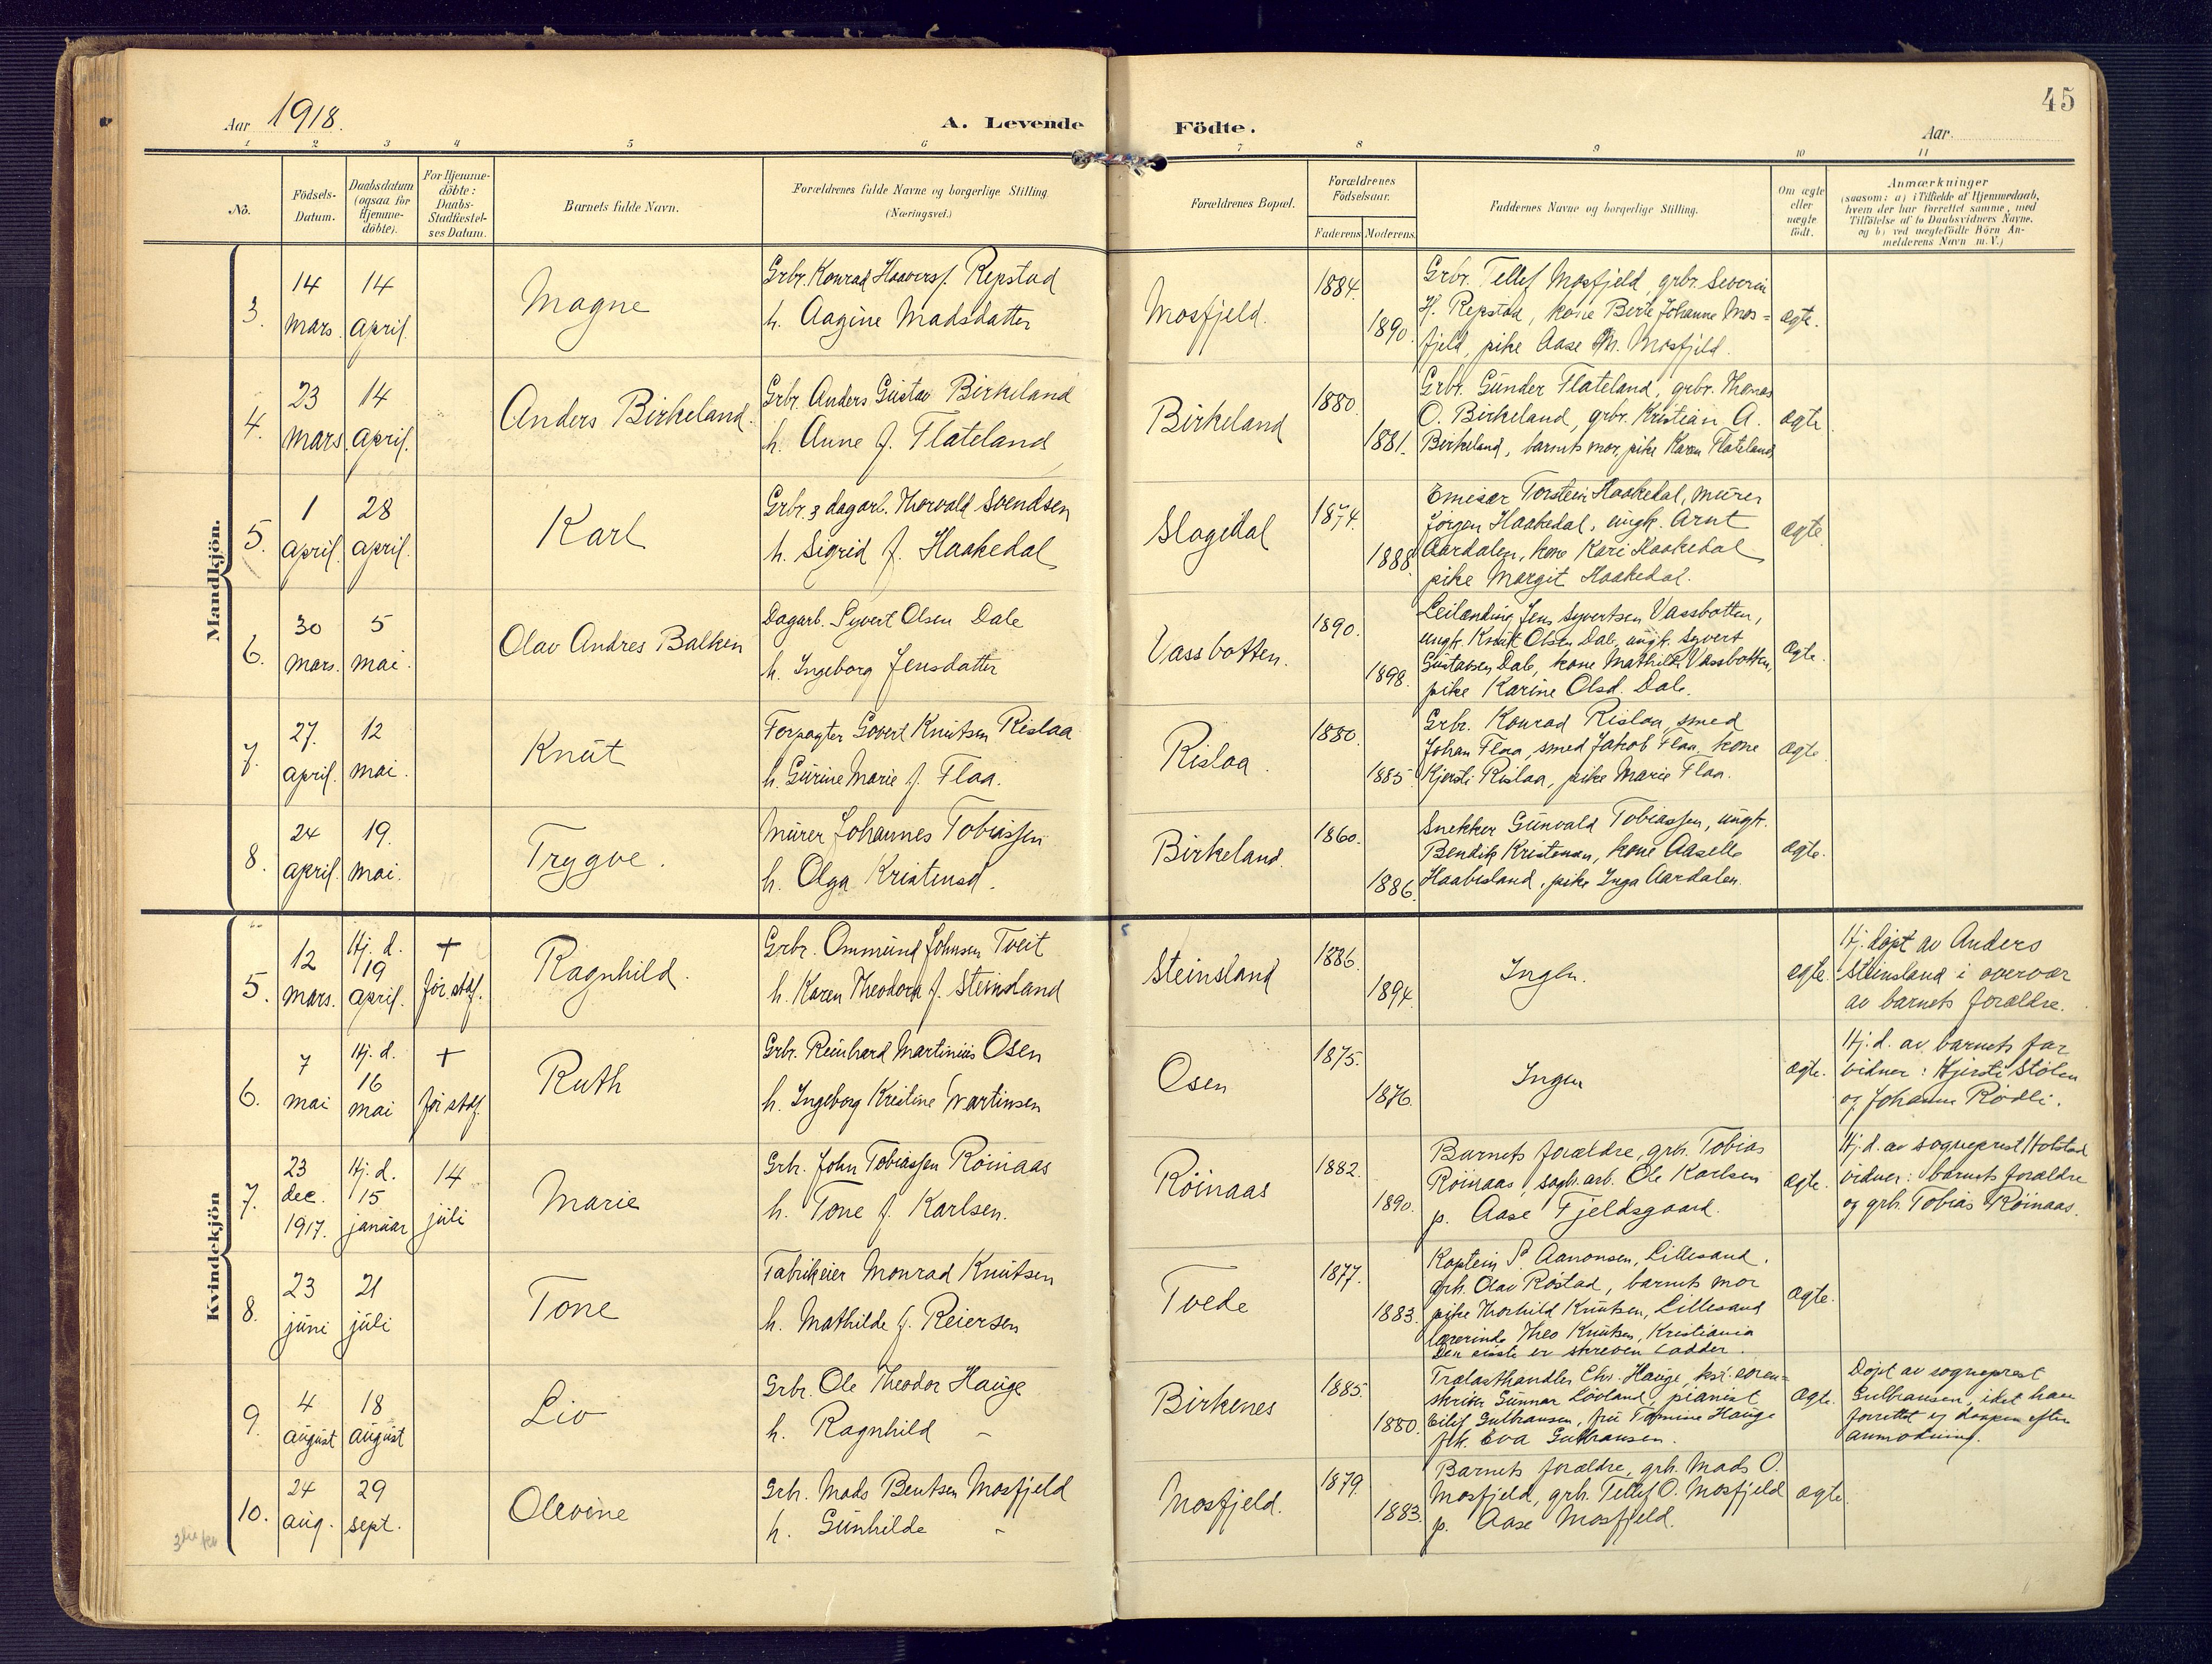 45
Aar 1918.
A. Levende Födte.
Aar
1 2 3 4 5 6 7 8 9 10 11
No.
Födsels-
Datum.
Daabsdatum
(ogsaa for
Hjemme-
döbte).
For Hjemme-
döbte:
Daabs-
Stadfæstel-
ses Datum.
Barnets fulde Navn.
Forældrenes fulde Navne og borgerlige Stilling
(Næringsvei.)
Forældrenes Bopæl.
Forældrenes
Födselsaar.
Faderens Moderens.
Faddernes Navne og borgerlige Stilling.
Om ægte
eller
uægte
födt.
Anmærkninger
(saasom: a) i Tilfælde af Hjemmedaab,
hvem der har forrettet samme, med
Tilföielse af to Daabsvidners Navne,
og b) ved uægtefödte Börn An-
melderens Navn m. V.)
Mandkjön.
3.
14
mars.
14
april.
Magne
Grbr. Konrad Haaversj. Repstad
h. Aagine Madsdatter
Mosfjeld.
1884.
1890.
Grbr. Tellef Mosfjeld, grbr. Severin
H. Repstad, kone Berte Johanne Mos=
fjeld, pike Aase M. Mosfjeld.
ægte.
4.
23
mars.
14
april.
Anders Birkeland.
Grbr. Anders Gustav Birkeland
h. Anne f. Flateland
Birkeland
1880.
1881.
Grbr. Gunder Flateland, grbr. Thomas
O. Birkeland, grbr. Kristian A.
Birkeland, barnets mor, pike Karen Flateland
ægte
5.
1
april.
28
april.
Karl
Grbr. & dagarb. Thorvald Svendsen
h. Sigrid f. Haakedal
Slagedal
1874.
1888.
Emisær Torstein Haakedal, murer
Jörgen Haakedal, ungk. Arnt
Aardalen, kone Kari Haakedal
pike Margit Haakedal.
ægte.
6.
30
mars.
5
mai.
Olav Andres Balken
Dagarb. Syvert Olsen Dale
h. Ingeborg Jensdatter
Vassbotten.
1890.
1898.
Leilænding Jens Syvertsen Vassbotten,
ungk. Knut Olsen Dale, ungk. Syvert
Gustavsen Dale, kone Mathilde Vassbotten,
pike Karine Olsd. Dale.
ægte.
7.
27.
april.
12
mai.
Knut
Forpagter Govert Knutsen Rislaa
h. Gurine Marie f. Flaa.
Rislaa.
1880.
1885.
Grbr. Konrad Rislaa, smed
Johan Flaa, smed Jakob Flaa, kone
Kjersti Rislaa, pike Marie Flaa.
ægte.
8.
24
april.
19.
mai.
Trygve.
Murer Johannes Tobiassen
h. Olga Kristensd.
Birkeland.
1860.
1886.
Snekker Gunvald Tobiassen, ungk.
Bendik Kristensen, kone Aaselle
Haabesland, pike Inga Aardalen.
ægte.
Kvindekjön
5.
12
mars.
Hj. d.
19
april.
+
för stdf.
Ragnhild.
Grbr. Ommund Johnsen Tveit
h. Karen Theodora f. Steinsland
Steinsland
1886.
1894.
Ingen.
ægte.
Hj. döpt av Anders
Steinsland i overvær
av barnets forældre.
6.
7
mai
Hj. d.
16
mai
+
för stdf.
Ruth
Grbr. Reinhard Martinius Osen
h. Ingeborg Kristine Martinsen
Osen
1875.
1876.
Ingen
ægte.
Hj. d. av barnets far
vidner: Kjersti Stölen
og Johanne Rödli.
7.
23
dec.
1917.
Hj. d.
15
januar
14
juli
Marie
Grb. John Tobiassen Röinaas
h. Tone f. Karlsen.
Röinaas
1882.
1890.
Barnets forældre, grb. Tobias
Röinaas, sagb.arb. Ole Karlsen
p. Aase Fjeldsgaard.
ægte.
Hj. d. av sogneprest Holstad
vidner: barnets forældre
og grb. Tobias Röinaas.
8.
23
juni
21
juli
Tone
Fabrikeier Monrad Knutsen
h. Mathilde f. Reiersen
Tvede
1877.
1883.
Kaptein P. Aanonsen, Lillesand.
grb. Olav Röstad, barnets mor
pike Thorhild Knutsen, Lillesand
lærerinde Theo Knutsen, Kristiania
Den sidste er skreven fadder.
ægte.
9.
4
august
18
august
Liv
Grbr. Ole Theodor Hauge
h. Ragnhild –
Birkenes
1885.
1880.
Trælasthandler Chr. Hauge, kst. soren=
skriver Gunnar Lövland, pianist
Eilif Gulbransen, fru Tomine Hauge
frk. Eva Gulbransen.
ægte.
Döpt av sogneprest
Gulbransen, idet han
forrettet ej daapen efter
anmodning.
10.
24
aug.
29
sept.
Olevine
Grb. Mads Bentsen Mosfjeld
h. Gunhilde –
Mosfjeld.
1879.
1883.
Barnets forældre, grb. Mads O.
Mosfjeld, grb. Tellef O. Mosfjeld
p. Aase Mosfjeld.
ægte.